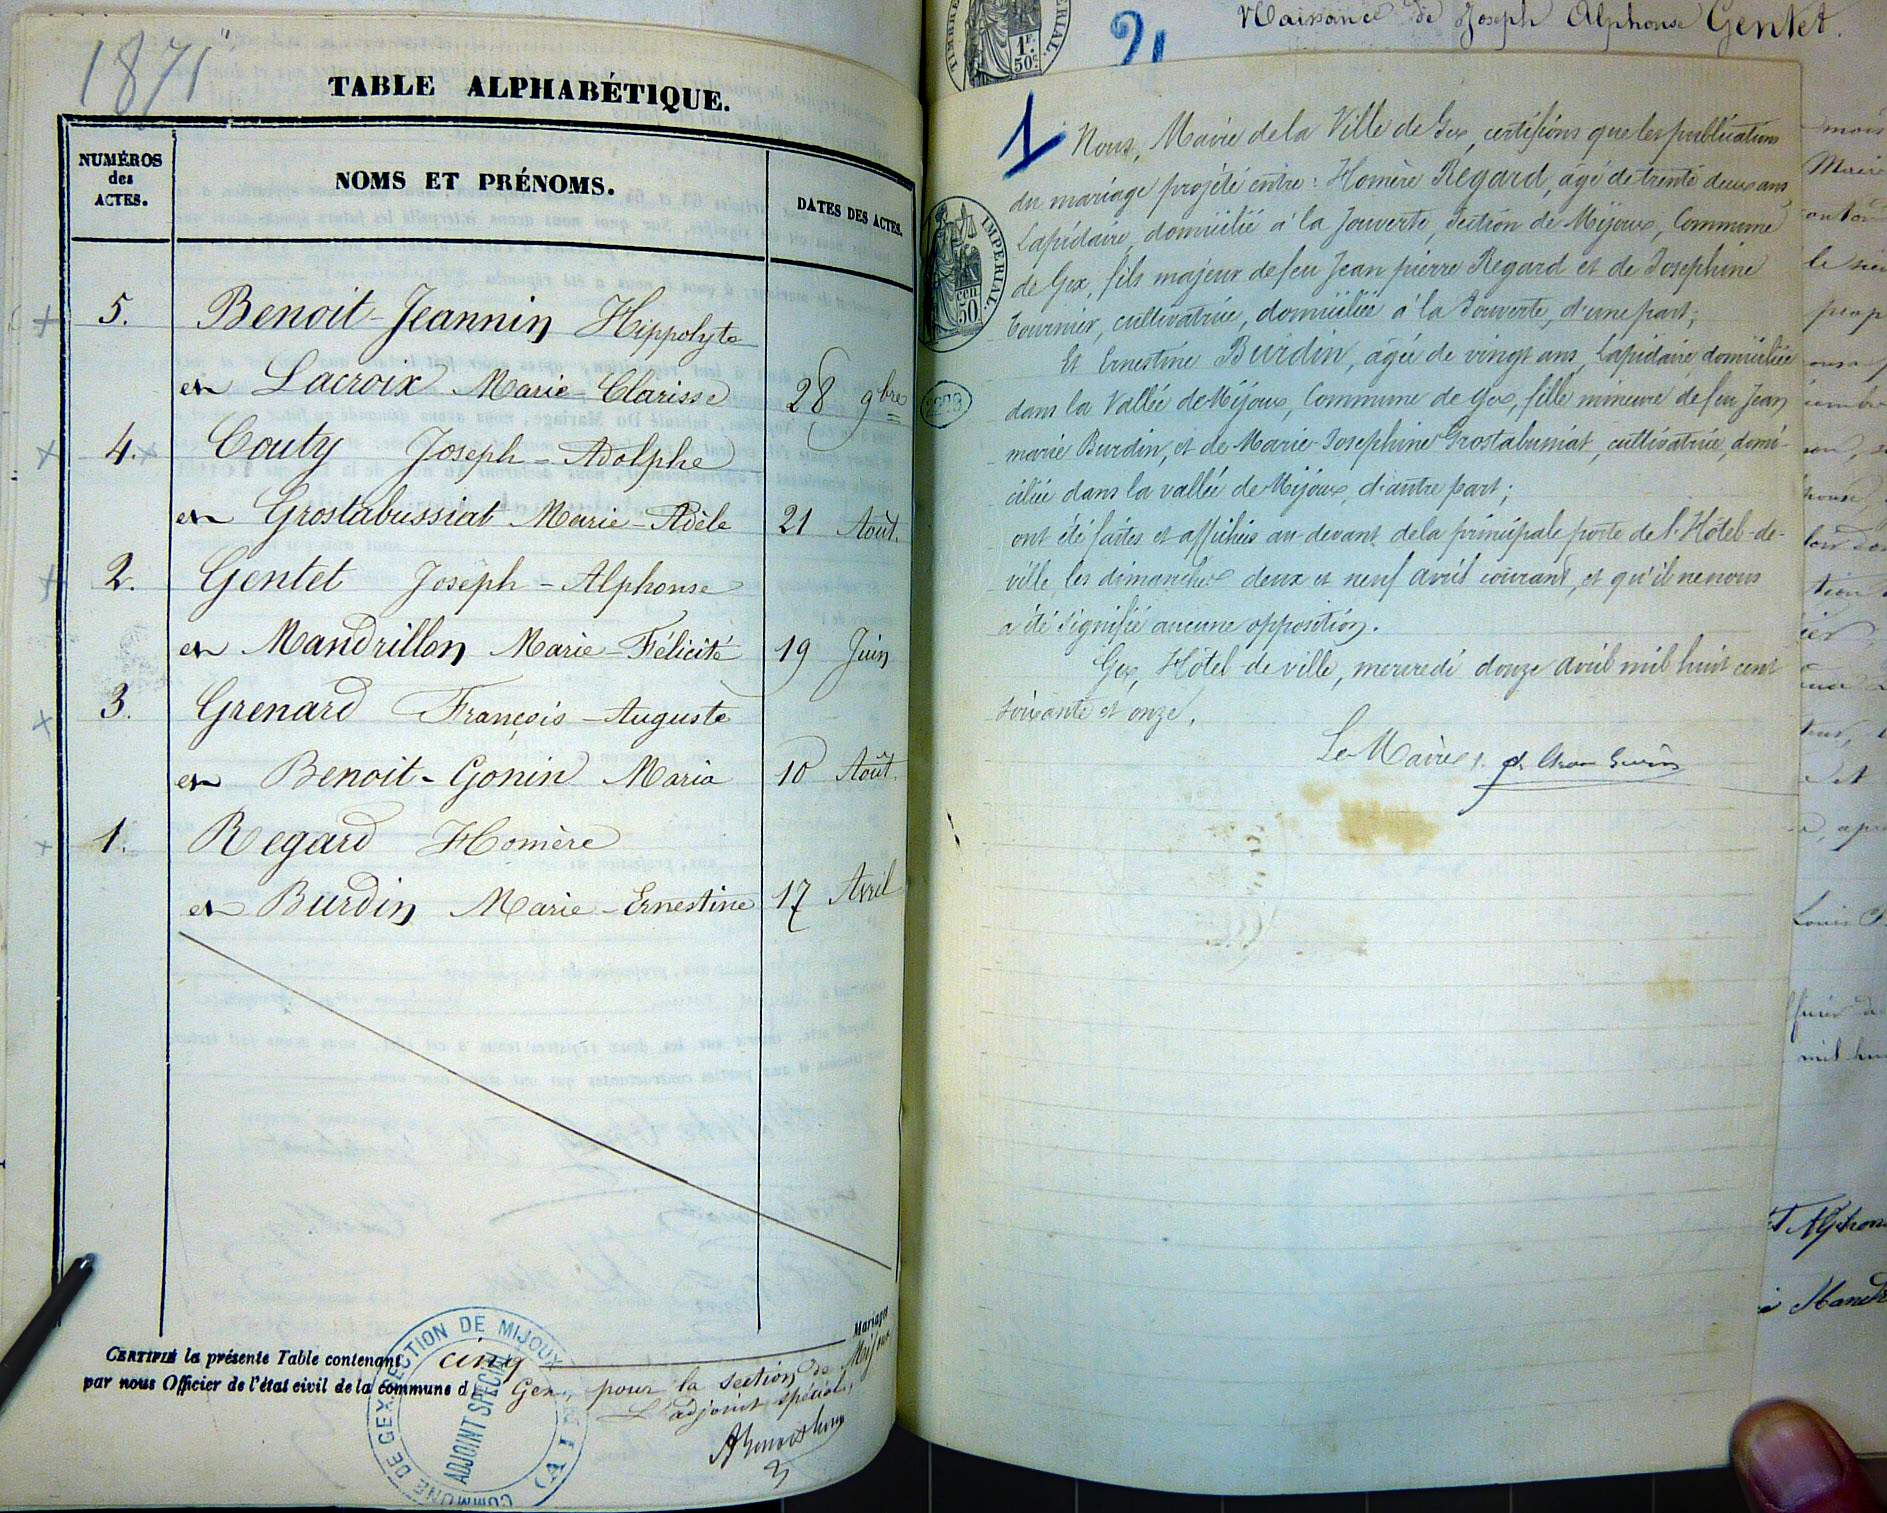 1871
TABLE ALPHABÉTIQUE.
NUMÉROS
des
ACTES.
NOMS ET PRÉNOMS.
DATES DES ACTES.
5. Benoit-Jeannin Hippolyte
et Lacroix Marie-Clarisse 28 9bre
4. Couty Joseph-Adolphe
et Grostabussiat Marie-Adèle 21 Août.
2. Gentet Joseph-Alphonse
et Mandrillon Marie-Félicité 19 Juin
3. Grenard François-Auguste
et Benoit-Gonin Maria 10 Août.
1. Regard Homère
et Burdin Marie-Ernestine 17 Avril
Mariages
CERTIFIÉ la présente Table contenant cinq
par nous Officier de l'état civil de la commune d Gex, pour la section de Mijoux.
L'adjoint spécial,
COMMUNE DE GEX SECTION DE MIJOUX
ADJOINT SPÉCIAL
(AIN)
TIMBRE IMPERIAL.
1F.
50c.
2
Naissance de Joseph Alphonse Gentet.
1
IMPERIAL.
cen
50
Nous, Maire de la Ville de Gex, certifions que les publications
du mariage projété entre: Homère Regard, âgé de trente deux ans,
Lapidaire, domicilié à la Jouverte, Section de Mijoux, Commune
de Gex, fils majeur de feu Jean pierre Regard et de Josephine
Tournier, cultivatrice, domiciliée à la Jouverte, d'une part;
Et Ernestine Burdin, âgée de vingt ans, Lapidaire, domiciliée
dans la Vallée de Mijoux, Commune de Gex, fille mineure de feu Jean
marie Burdin, et de Marie Josephine Grostabussiat, cultivatrice, domi-
ciliée dans la vallée de Mijoux, d'autre part;
ont été faites et affichées au devant de la principale porte de l'Hôtel-de-
ville, les dimanches deux et neuf avril courant, et qu'il ne nous
a été signifié aucune opposition.
Gex, Hôtel-de ville, mercredi douze avril mil huit cent
soixante et onze.
Le Maire,
mois
Maire
le sieu
prop
Louis
mil hu
Alphon